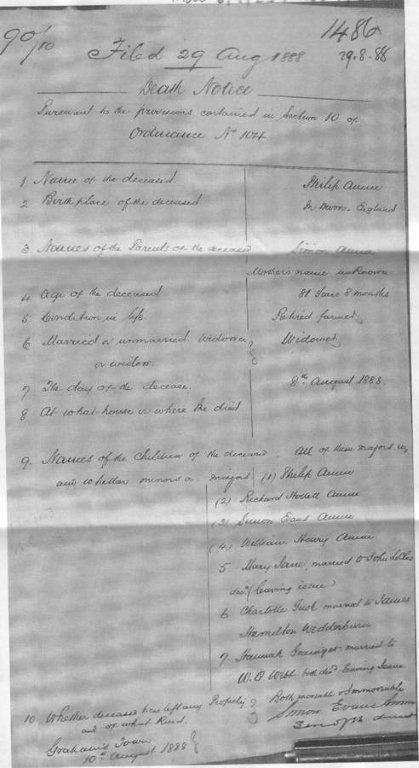 90/10
1486
Filed 29 Aug 1888
29.8.88
Death Notice
Pursuant to the provisions contained in Section 10 of
Ordinance No 104
1 Name of the deceased Philip Amm
2 Birth place of the deceased In Devon England
3 Names of the Parents of the deceased Simon Amm
Mother's name unknown
4 Age of the deceased 81 Years 8 months
5 Condition in life Retired farmer
6 Married or unmarried Widower Widower
or widow
7 The day of the decease 8th August 1888
8 At what house or where he died
9. Names of the Children of the deceased All of them majors
and whether minors or majors (1) Philip Amm
(2) Richard Amm
(3) Simon Evans Amm
(4) William Henry Amm
5 Mary Jane, married to John
(leaving issue)
6 Charlotte married to James
Hamilton Wedderburn
7 Hannah married to
W. O Webb both died leaving Issue
10 Whether deceased has left any Property Both movable & Immovable
and of what kind. Simon Evans Amm
Graham's Town
10th August 1888